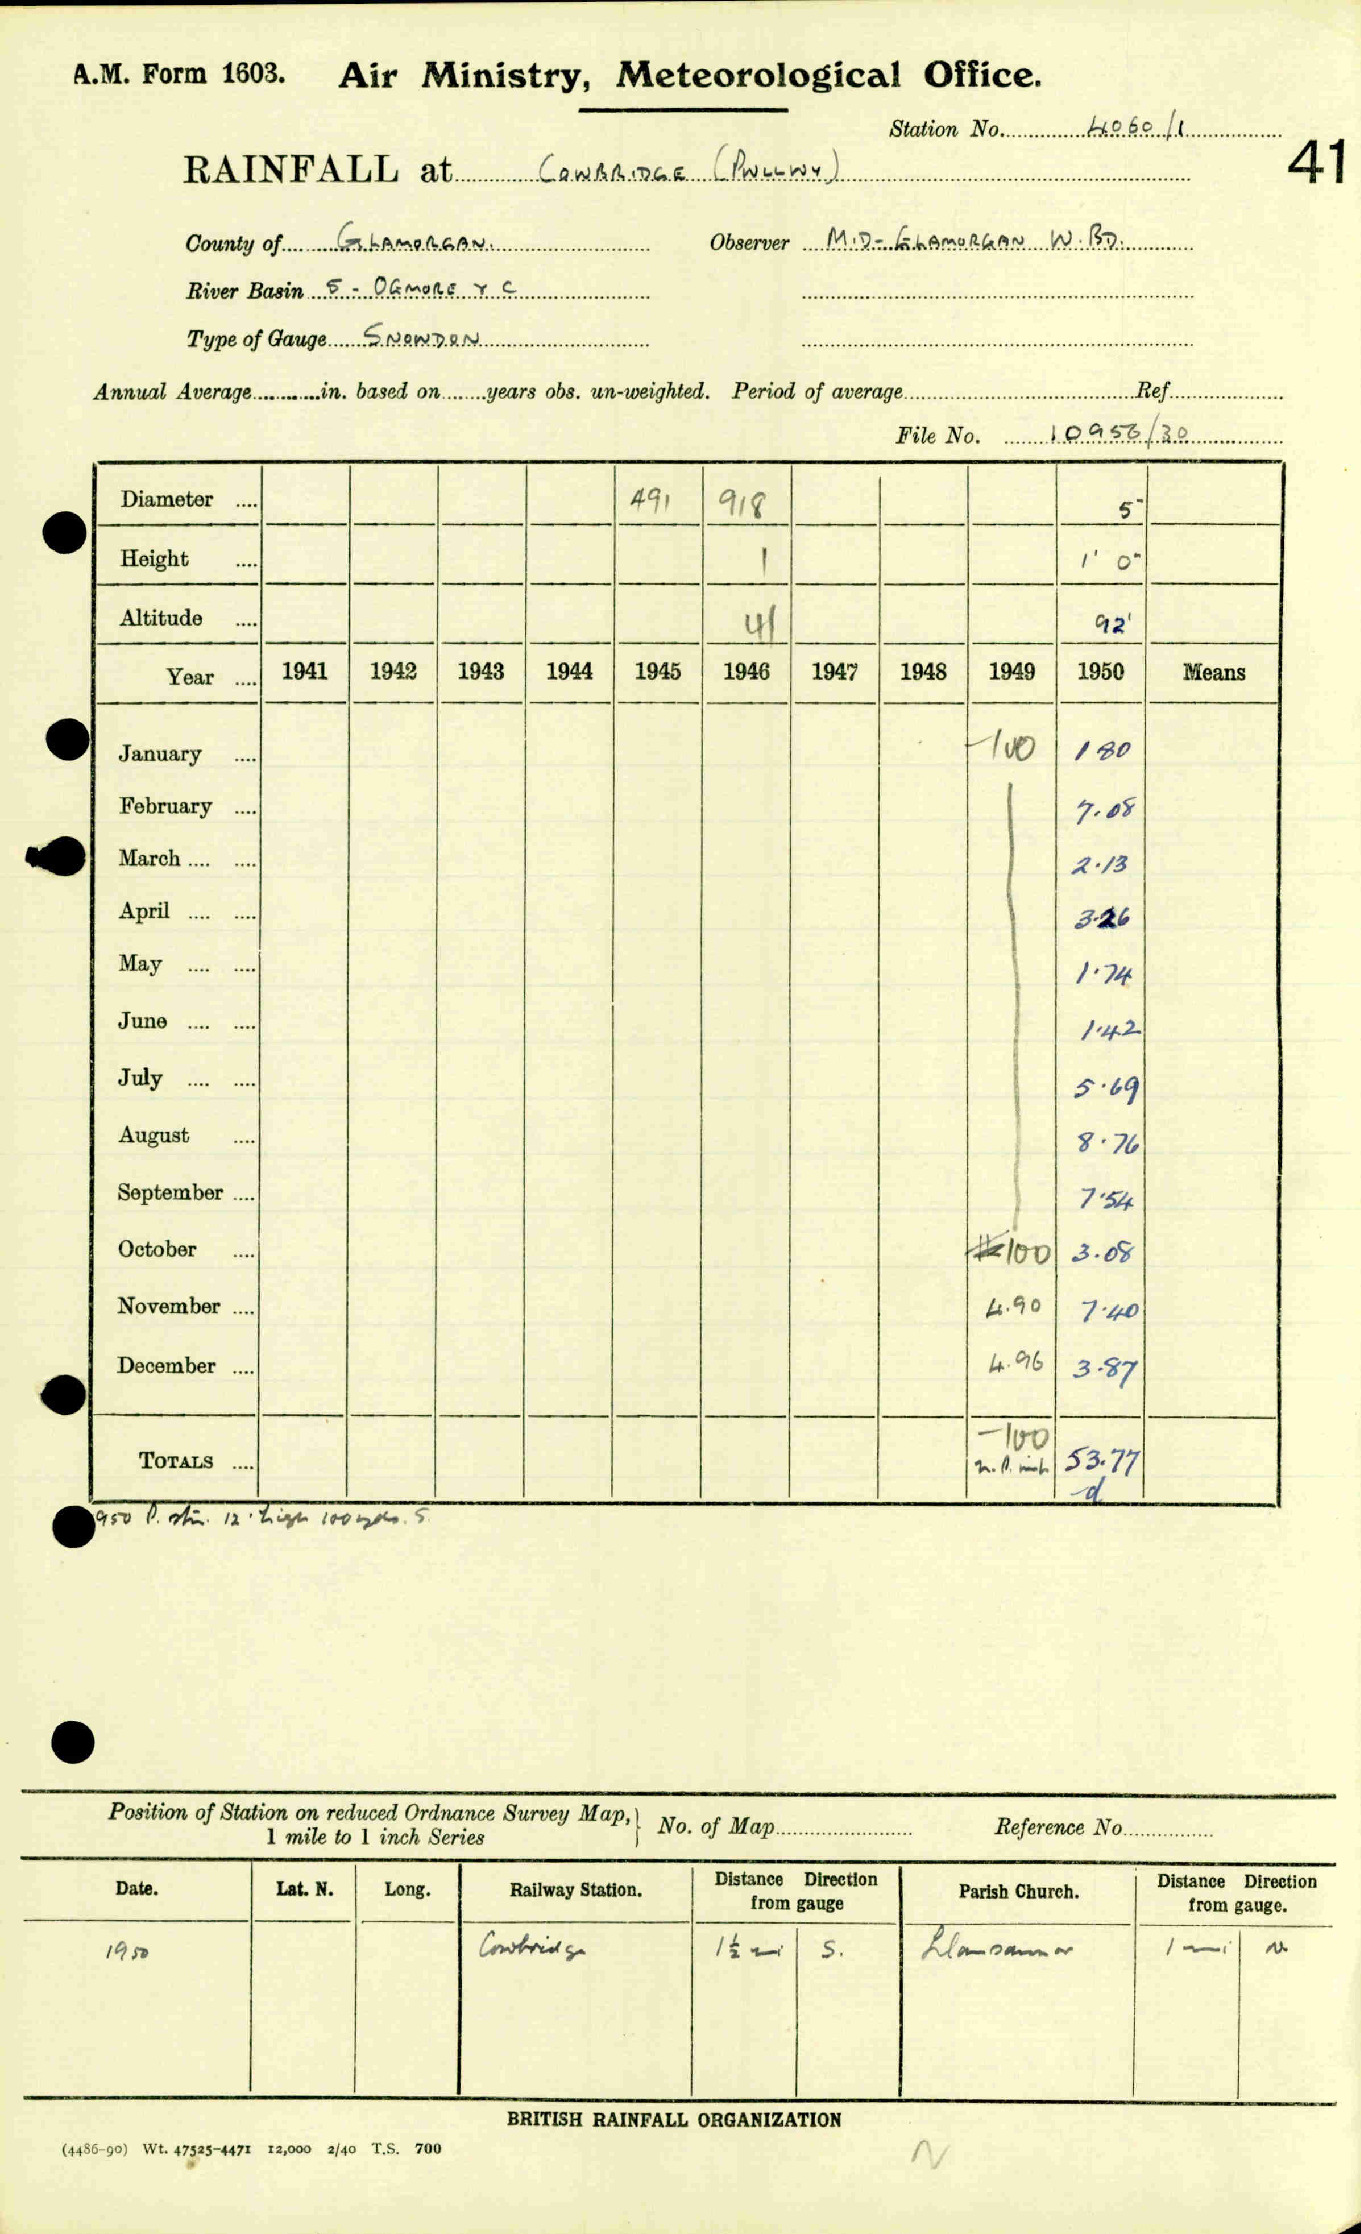 A.M. Form 1603. Air Ministry, Meteorological Office.
Station No. 4060/1
41
RAINFALL at COWBRIDGE (PWLLWY)
County of GLAMORGAN. Observer MID-GLAMORGAN W. BD.
River Basin 5 - OGMORE Y C
Type of Gauge SNOWDON
Annual Average in. based on years obs. un-weighted. Period of average Ref.
File No. 10956/30
Diameter .... 491 918 5"
Height .... 1 1' 0"
Altitude .... 41 92'
Year .... 1941 1942 1943 1944 1945 1946 1947 1948 1949 1950 Means
January .... -100 1 80
February .... 7.08
March .... .... 2.13
April .... .... 3.26
May .... .... 1.74
June .... .... 1.42
July .... .... 5.69
August .... 8.76
September .... 7.54
October .... 100 3.08
November .... 4.90 7.40
December .... 4.96 3.87
-100
TOTALS .... 53.77
d
950 P. stn. 12' high 100 yds. S.
Position of Station on reduced Ordnance Survey Map, } No. of Map Reference No.
1 mile to 1 inch Series
Date. Lat. N. Long. Railway Station. Distance Direction from gauge Parish Church. Distance Direction from gauge.
1950 Cowbridge 1½ mi S. Llansannor 1 mi N
BRITISH RAINFALL ORGANIZATION
(4486-90) Wt. 47525-4471 12,000 2/40 T.S. 700
N